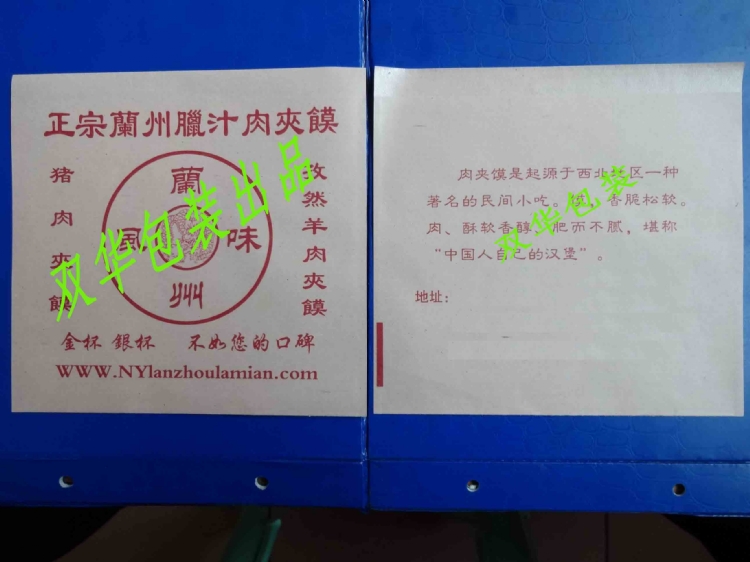 正宗蘭州臘汁肉夾饃
猪肉夾饃
孜然羊肉夾饃
蘭
風 味
金杯 銀杯 不如您的口碑
WWW.NYlanzhoulamian.com
双华包装出品
肉夹馍是起源于西北地区一种
著名的民间小吃。馍、香脆松软。
肉、酥软香醇、肥而不腻，堪称
“中国人自己的汉堡”。
地址：
双华包装